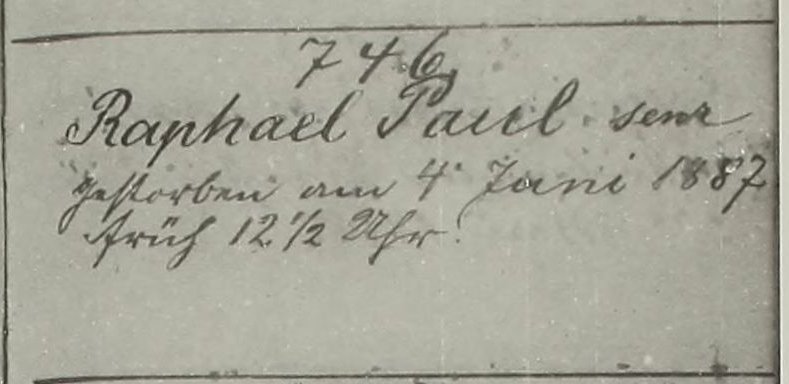 746.
Raphael Paul senr
gestorben am 4 Juni 1887
früh 12 1/2 Uhr.